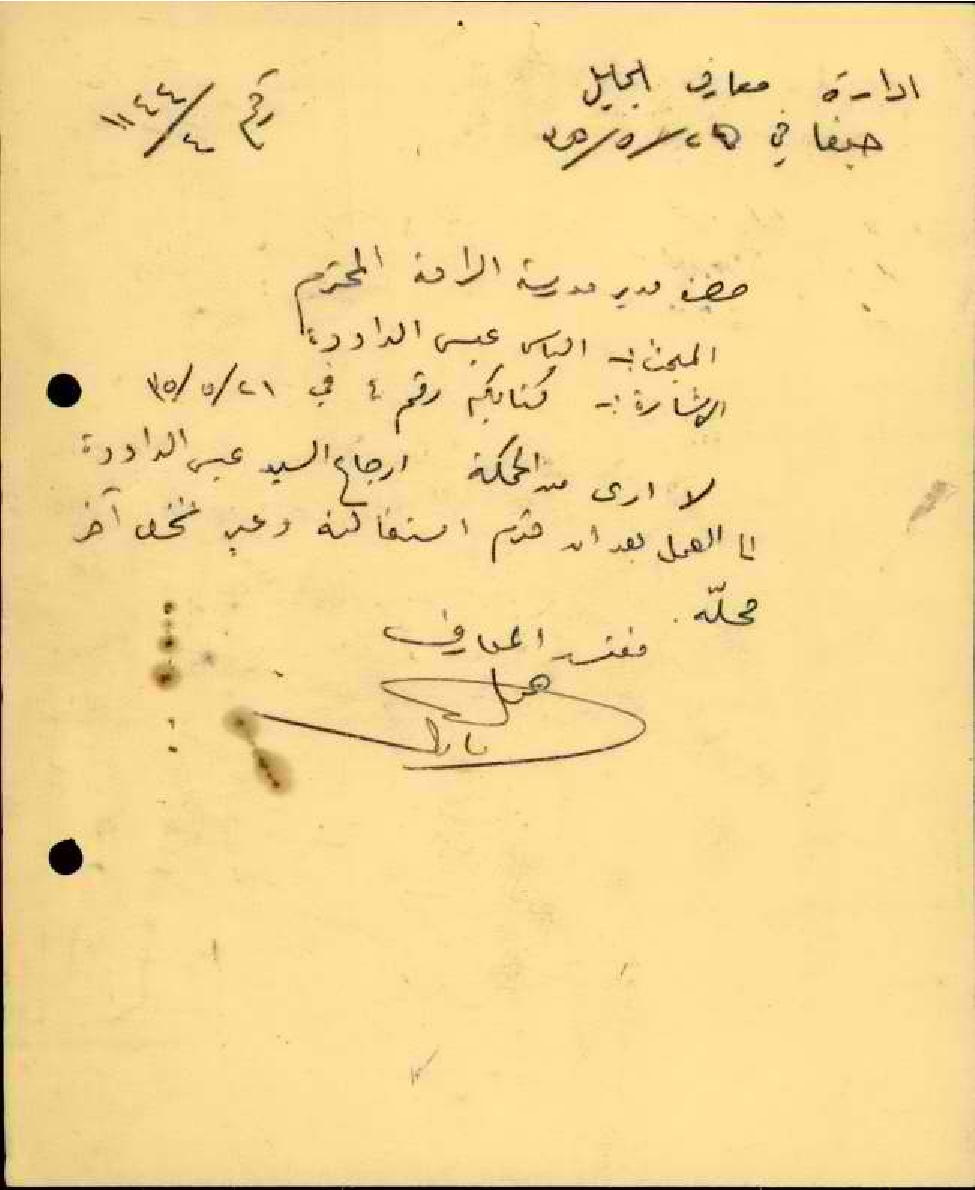 ادارة معارف الجليل
حيفا في ٢٥/٥/٣٥
رقم ١١٤٤/٤٠
حضرة مدير مدرسة الرامة المحترم
المبحث :- الياس عيسى الداوود
الاشارة :- كتابكم رقم ٤ في ٢١/٥/٣٥
لا ارى من الحكمة ارجاع السيد عيسى الداوود
الى العمل بعد ان قدم استقالته وعين شخص آخر
محلّه.
مفتش المعارف